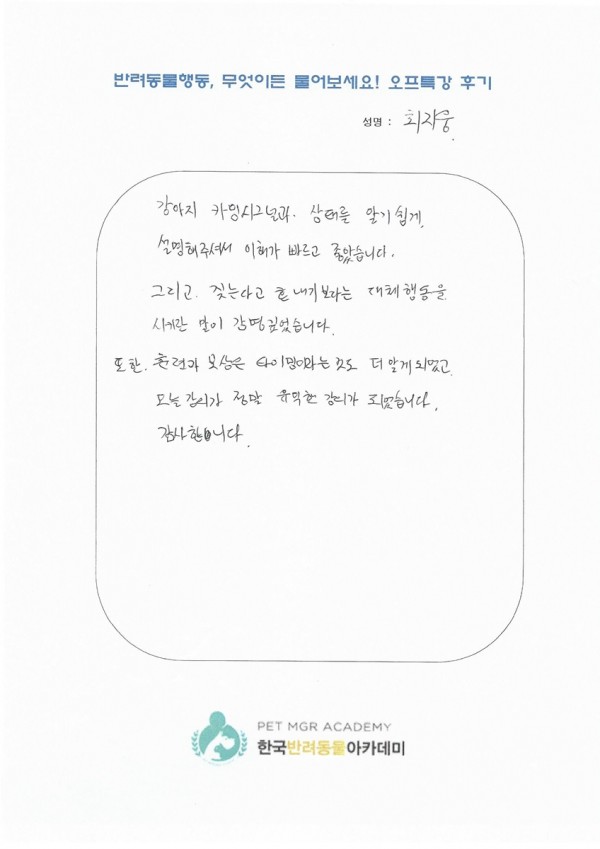 반려동물행동, 무엇이든 물어보세요! 오프특강 후기
성명 : 최자웅.
강아지 카밍시그널과. 상태를 알기쉽게.
설명해주셔서 이해가 빠르고 좋았습니다.
그리고. 짖는다고 혼내기보다는 대체행동을
시키란 말이 감명깊었습니다.
또한. 훈련과 보상은 타이밍이라는것도 더알게되었고.
오늘강의가 정말 유익한 강의가 되었습니다.
감사합니다.
PET MGR ACADEMY
한국반려동물아카데미